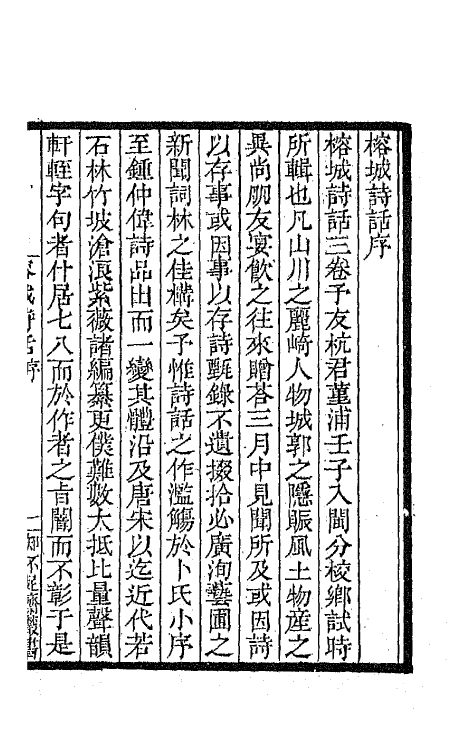 榕城詩話序
榕城詩話三卷予友杭君堇浦壬子入閩分校鄉試時
所輯也凡山川之麗崎人物城郭之隱賑風土物產之
異尚朋友宴飲之往來贈荅三月中見聞所及或因詩
以存事或因事以存詩甄錄不遺掇拾必廣洵藝圃之
新聞詞林之佳構矣予惟詩話之作濫觴於卜氏小序
至鍾仲偉詩品出而一變其體沿及唐宋以迄近代若
石林竹坡滄浪紫薇諸編纂更僕難數大抵比量聲韻
軒輊字句者什居七八而於作者之旨闇而不彰于是
榕城詩話序 一 知不足齋叢書